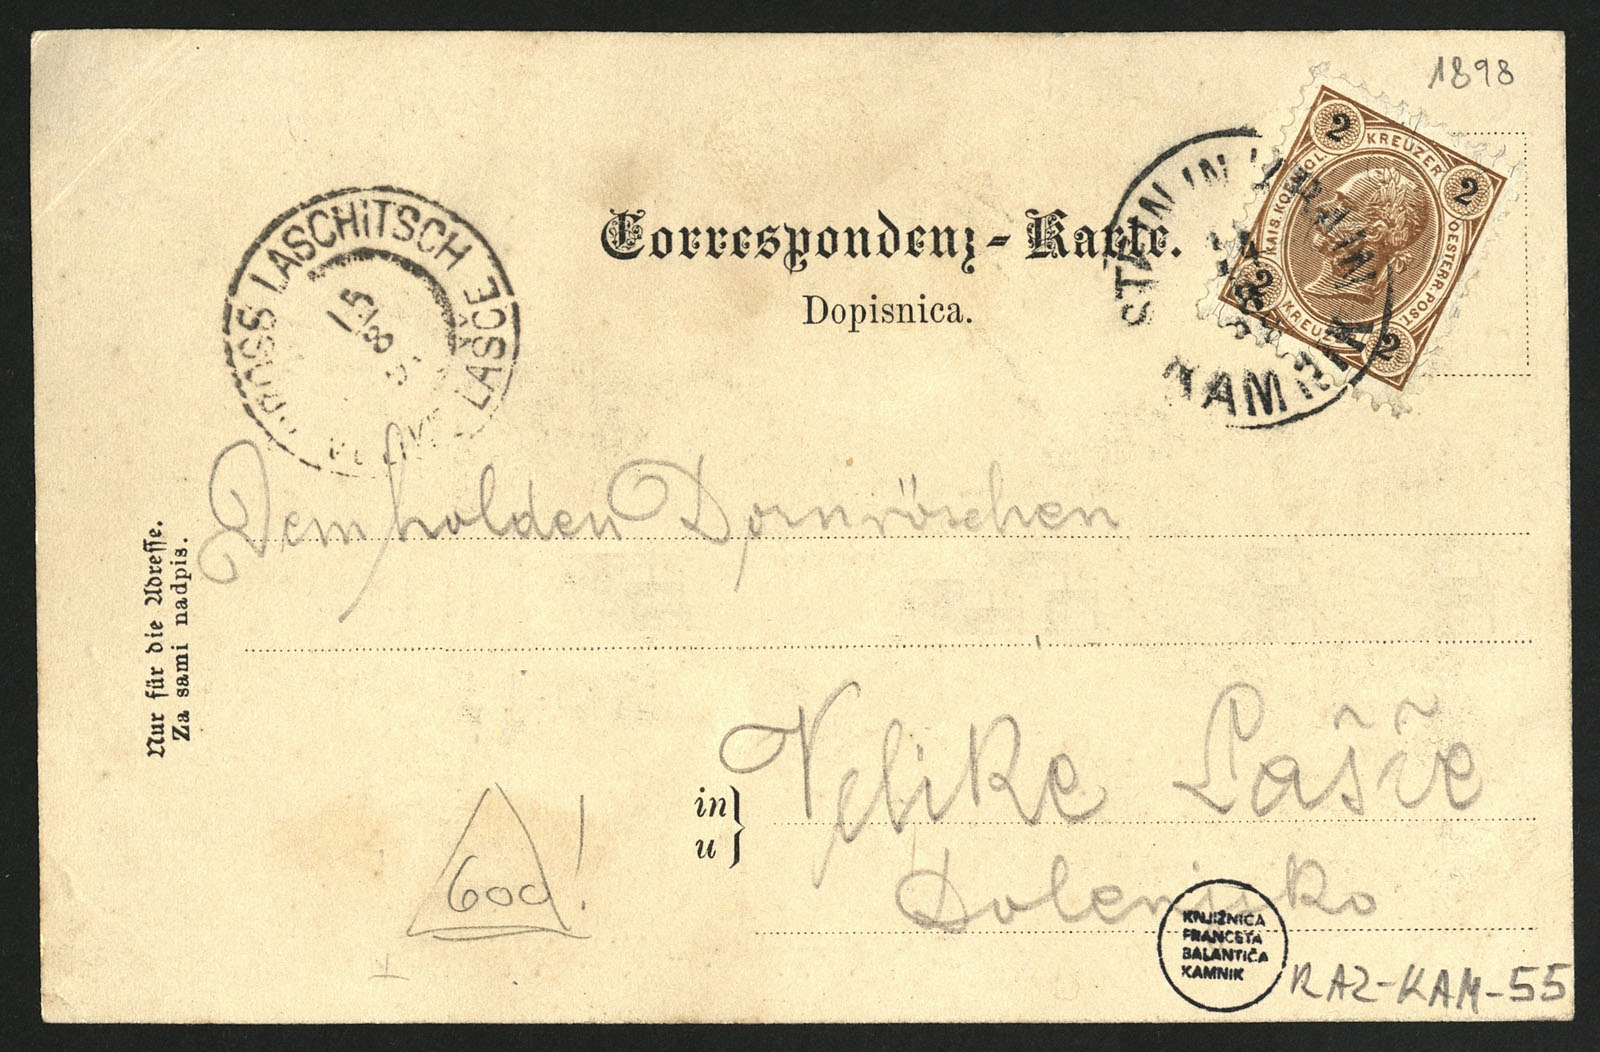 1898
2 KREUZER 2
KAIS. KOENIGL. OESTERR. POST.
2 KREUZER 2
STEIN IN KRAIN
KAMNIK
GROSS LASCHITSCH
LAŠČE
15
8
Correspondenz-Karte.
Dopisnica.
Dem holden Dornröschen
Nur für die Adresse.
Za sami nadpis.
in
u
Velike Lašče
Dolenjsko
600!
KNJIŽNICA
FRANCETA
BALANTIČA
KAMNIK
RAZ-KAM-55